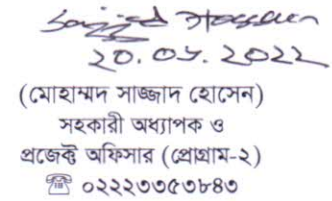 Sajjad Hossain
20.05.2022
(মোহাম্মদ সাজ্জাদ হোসেন)
সহকারী অধ্যাপক ও
প্রজেক্ট অফিসার (প্রোগ্রাম-২)
☏ ০২২২৩৩৫৩৮৪৩